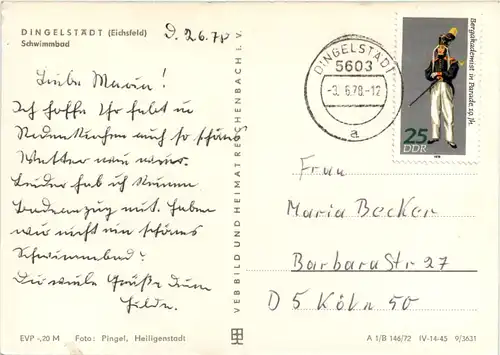 DINGELSTÄDT (Eichsfeld)
Schwimmbad
D. 2.6.78
Liebe Maria!
Ich hoffe Ihr habt in
Rodenkirchen auch so schönes
Wetter wie wir.
Leider hab ich keinen
Badeanzug mit. Haben
wir nicht ein schönes
Schwimmbad?
Die viele Grüße Deine
Hilde.
VEB BILD UND HEIMAT REICHENBACH i. V.
DINGELSTÄDT
5603
-3. 6. 78.-12
a
Bergakademist in Parade, 19. Jh.
25
DDR
1978
Frau
Maria Becker
Barbara Str 27
D 5 Köln 50
EVP -,20 M Foto: Pingel, Heiligenstadt
A 1/B 146/72 IV-14-45 9/3631